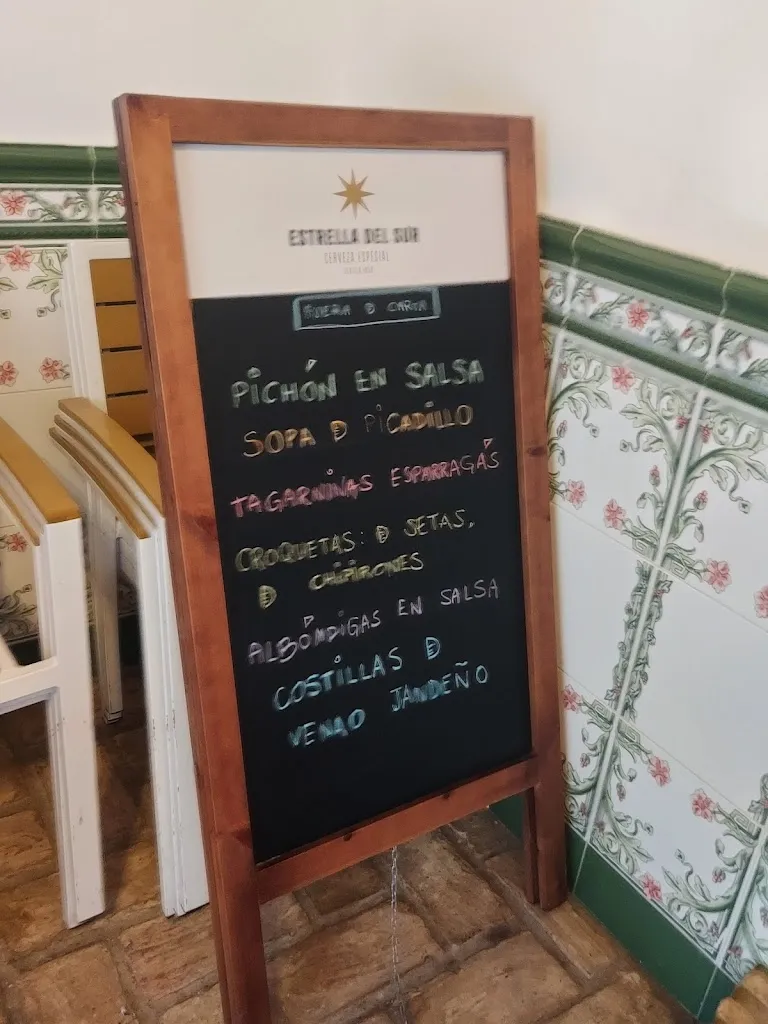 ESTRELLA DEL SUR
CERVEZA ESPECIAL
FUERA D CARTA
PICHÓN EN SALSA
SOPA D PICADILLO
TAGARNINAS ESPARRAGÁS
CROQUETAS: D SETAS,
D CHIPIRONES
ALBÓNDIGAS EN SALSA
COSTILLAS D
VENAO JANDEÑO